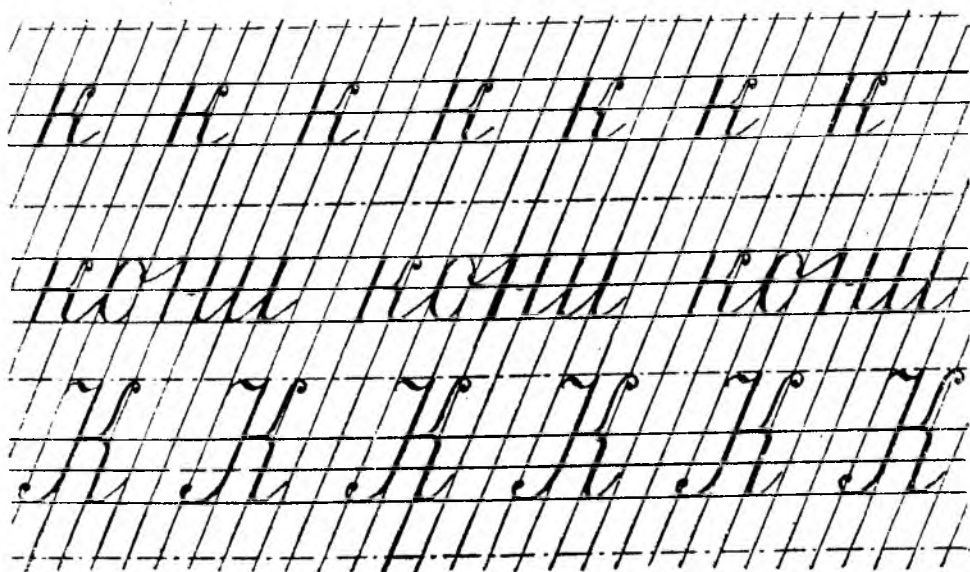 к к к к к к к
кони кони кони
К К К К К К